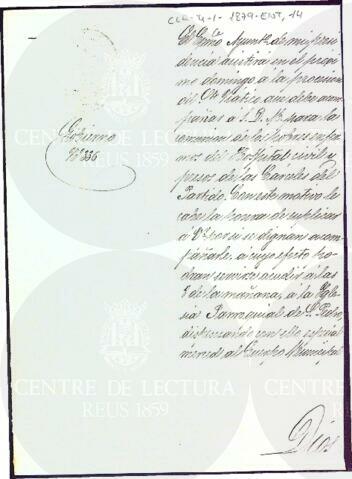 CLR-4-1-1879-ENT, 14
El Exmo Ayunto de mi presi
dencia asistirá en el próxi
mo domingo á la procesion
del Sto Viático que debe acom
pañar á S. D. M. para la
comunion de los pobres enfer
mos del Hospital civil y
presos de las Cárceles del
Partido. Con este motivo le
cabe la honra de suplicar
á V. por si se dignan acom
pañarle, á cuyo efecto po
drán servirse acudir á las
8 de la mañana, á la Igle
sia Parroquial de S. Pedro,
dispensando con ello especial
merced al Cuerpo Municipal
Dios
Gobierno
No 336
CENTRE DE LECTURA
REUS 1859
CENTRE DE LECTURA
REUS 1859